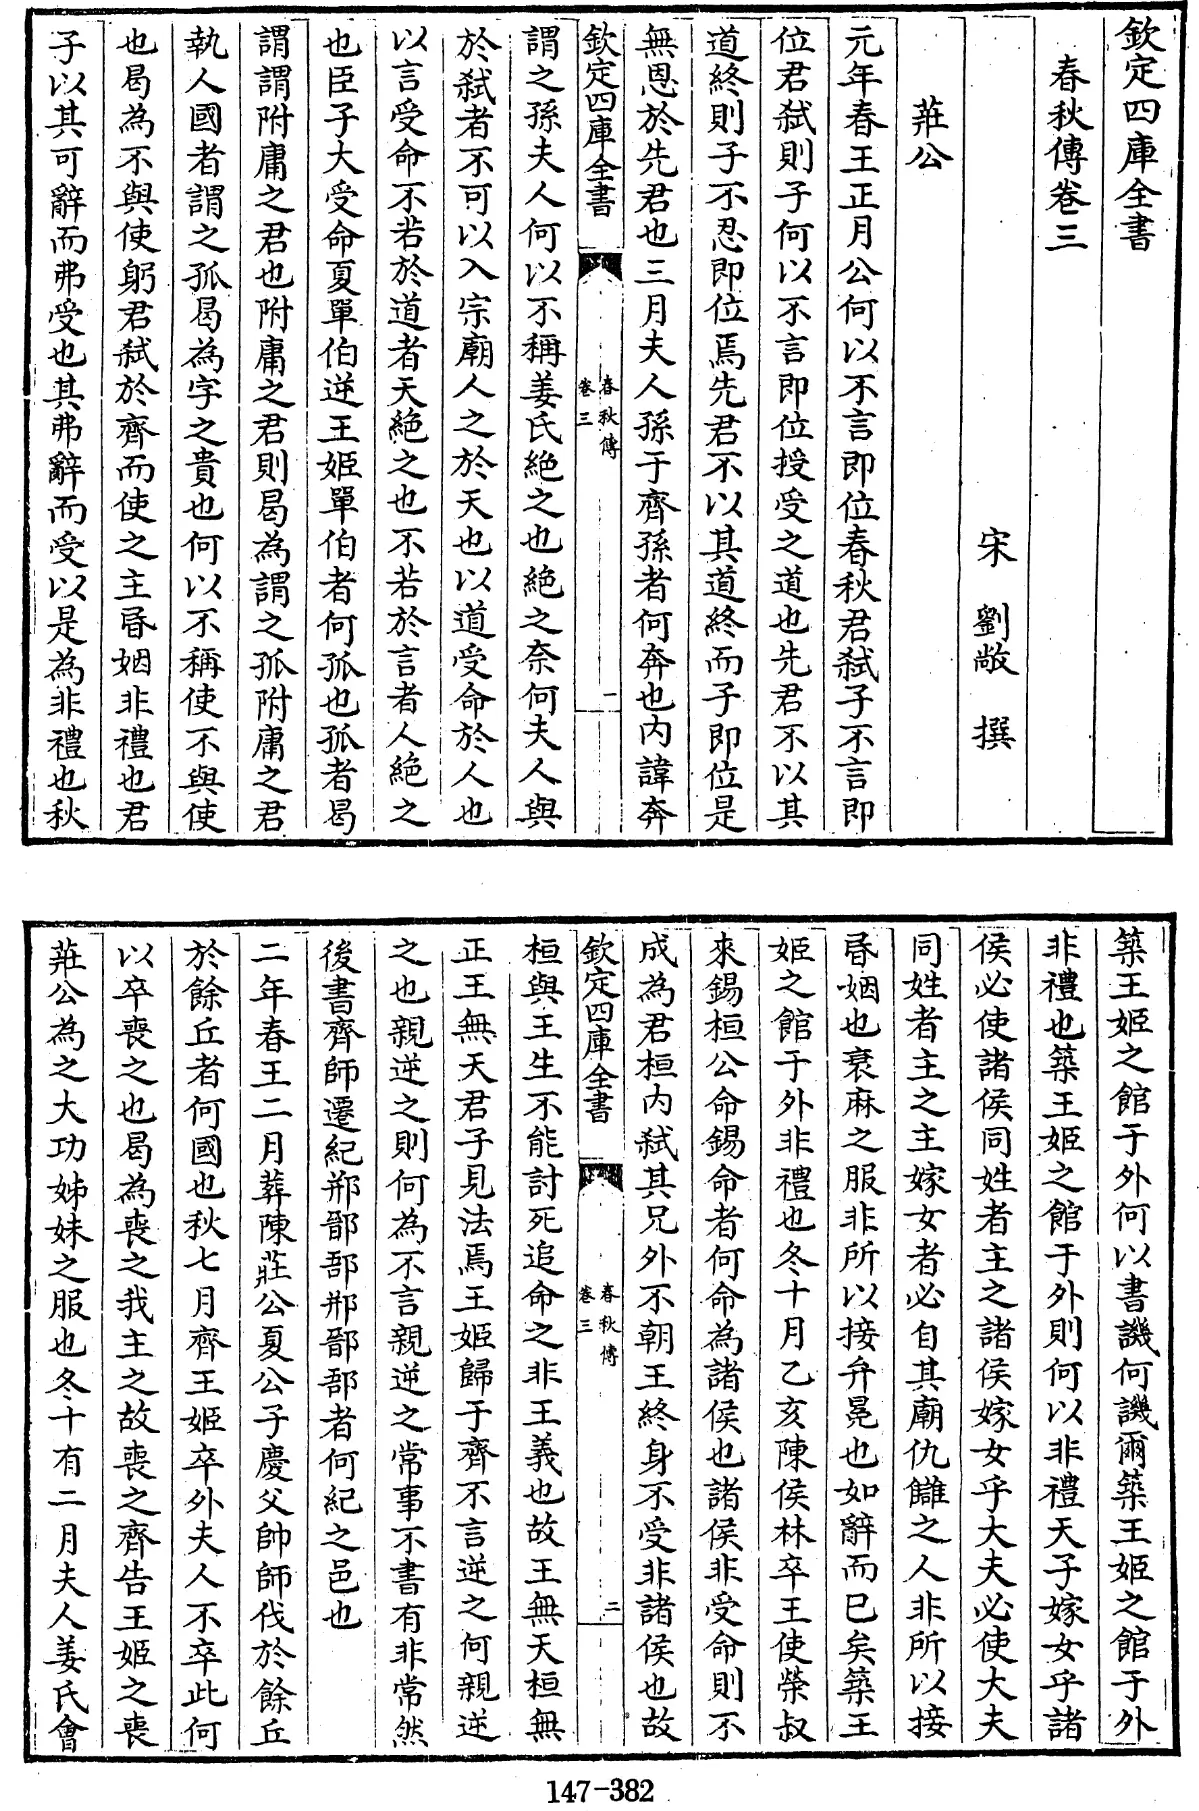 欽定四庫全書
春秋傳卷三
宋 劉敞 撰
莊公
元年春王正月公何以不言即位春秋君弑子不言即
位君弑則子何以不言即位授受之道也先君不以其
道終則子不忍即位焉先君不以其道終而子即位是
無恩於先君也三月夫人孫于齊孫者何奔也内諱奔
欽定四庫全書
春秋傳
卷三
一
謂之孫夫人何以不稱姜氏絶之也絶之奈何夫人與
於弑者不可以入宗廟人之於天也以道受命於人也
以言受命不若於道者天絶之也不若於言者人絶之
也臣子大受命夏單伯逆王姬單伯者何孤也孤者曷
謂謂附庸之君也附庸之君則曷為謂之孤附庸之君
執人國者謂之孤曷為字之貴也何以不稱使不與使
也曷為不與使躬君弑於齊而使之主昏姻非禮也君
子以其可辭而弗受也其弗辭而受以是為非禮也秋
築王姬之館于外何以書譏何譏爾築王姬之館于外
非禮也築王姬之館于外則何以非禮天子嫁女乎諸
侯必使諸侯同姓者主之諸侯嫁女乎大夫必使大夫
同姓者主之主嫁女者必自其廟仇讎之人非所以接
昏姻也衰麻之服非所以接弁冕也如辭而已矣築王
姬之館于外非禮也冬十月乙亥陳侯林卒王使榮叔
來錫桓公命錫命者何命為諸侯也諸侯非受命則不
成為君桓内弑其兄外不朝王終身不受非諸侯也故
欽定四庫全書
春秋傳
卷三
二
桓與王生不能討死追命之非王義也故王無天桓無
正王無天君子見法焉王姬歸于齊不言逆之何親逆
之也親逆之則何為不言親逆之常事不書有非常然
後書齊師遷紀郱鄑郚郱鄑郚者何紀之邑也
二年春王二月葬陳莊公夏公子慶父帥師伐於餘丘
於餘丘者何國也秋七月齊王姬卒外夫人不卒此何
以卒喪之也曷為喪之我主之故喪之齊告王姬之喪
莊公為之大功姊妹之服也冬十有二月夫人姜氏會
147-382